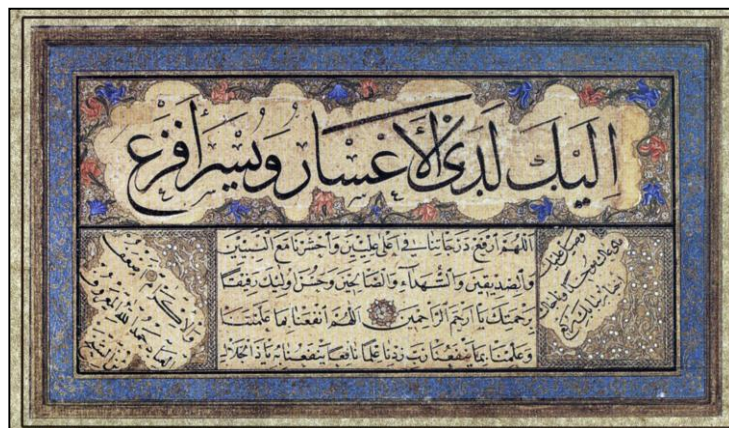 اليك لدى الأعسار ويسر أفزع
اللهم ارفع درجاتنا في اعلى عليين واحشرنا مع النبيين
والصديقين والشهداء والصالحين وحسن اولئك رفيقا
برحمتك يا ارحم الراحمين اللهم انفعنا بما علمتنا
وعلمنا بما ينفعنا رب زدنا علما نافعا ينفعنا به يا ذا الجلال
والاكرام
العباد حمد الله المعروف
بابن الشيخ